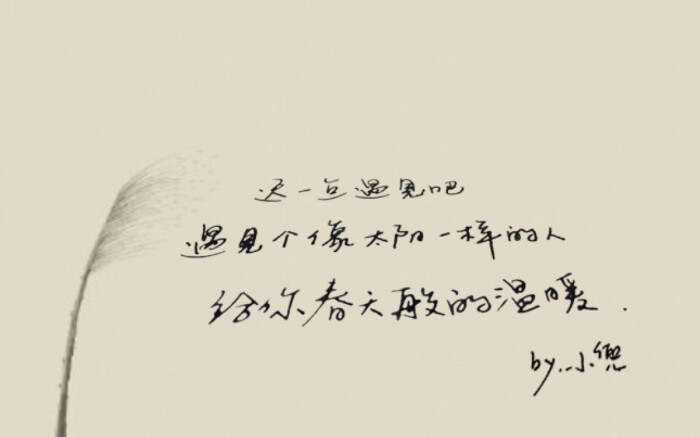 迟一点遇见吧
遇见个像太阳一样的人
给你春天般的温暖.
by.小兜